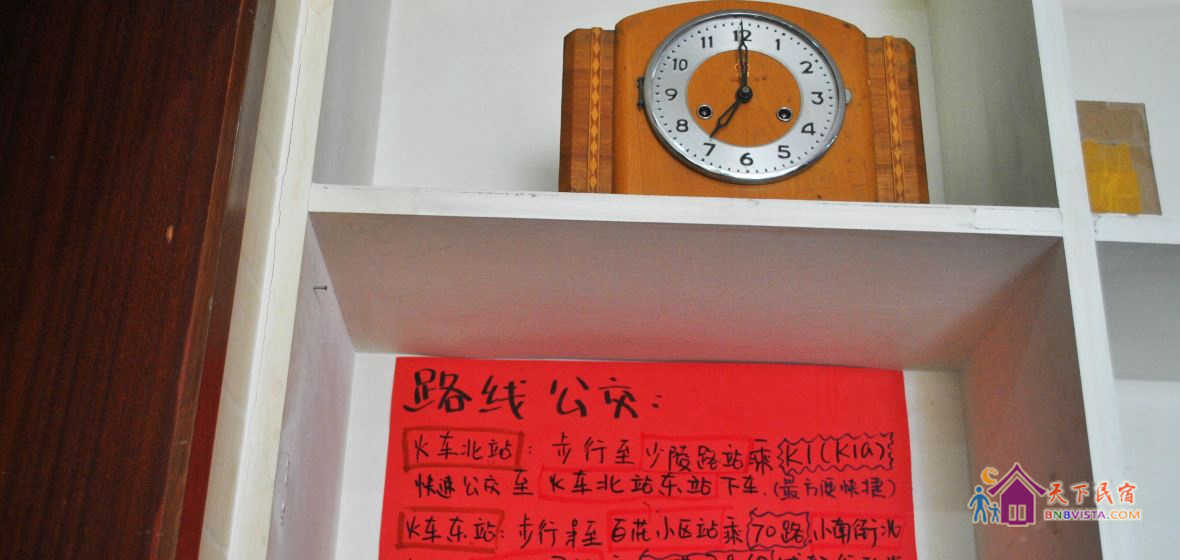 12
11 1
10 2
9 3
8 4
7 5
6
路线公交:
火车北站: 步行至少陵路站乘K1(K1a)
快速公交至火车北站东站下车.(最方便快捷)
火车东站: 步行至百花小区站乘70路小南街沁
天下民宿
BNBVISTA.COM